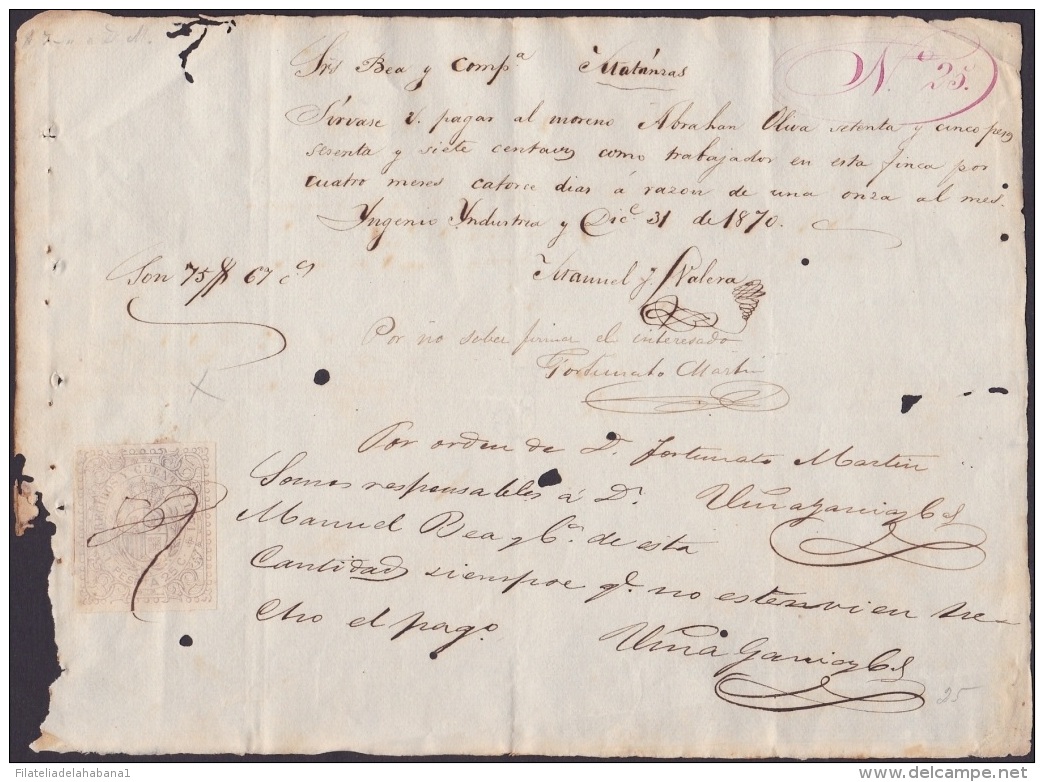 Nº 25.
Srs Bea y Compª Matánzas
Sírvase V. pagar al moreno Abrahan Oliva setenta y cinco pesos
sesenta y siete centavs como trabajador en esta finca por
cuatro meses catorce dias á razon de una onza al mes.
Yngenio Yndustria y Dice 31 de 1870.
Son 75$ 67 cs
Manuel J. Valera
Por no saber firmar el interesado
Fortunato Martin
Por orden de D. Fortunato Martin
Somos responsables á D.
Manuel Bea y Cª de esta
Cantidad siempre q. no este vi en he
cho el pago.
Viña Garcia y Cª
Viña Garcia y Cª
25
Filateliadelahabana1
www.delcampe.net